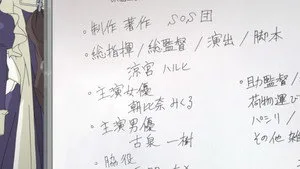 ・制作 著作 SOS団
・総指揮/総監督/演出/脚本
涼宮ハルヒ
・主演女優
朝比奈みくる
・主演男優
古泉一樹
・脇役
・助監督
荷物運び
パシリ/
その他 雑